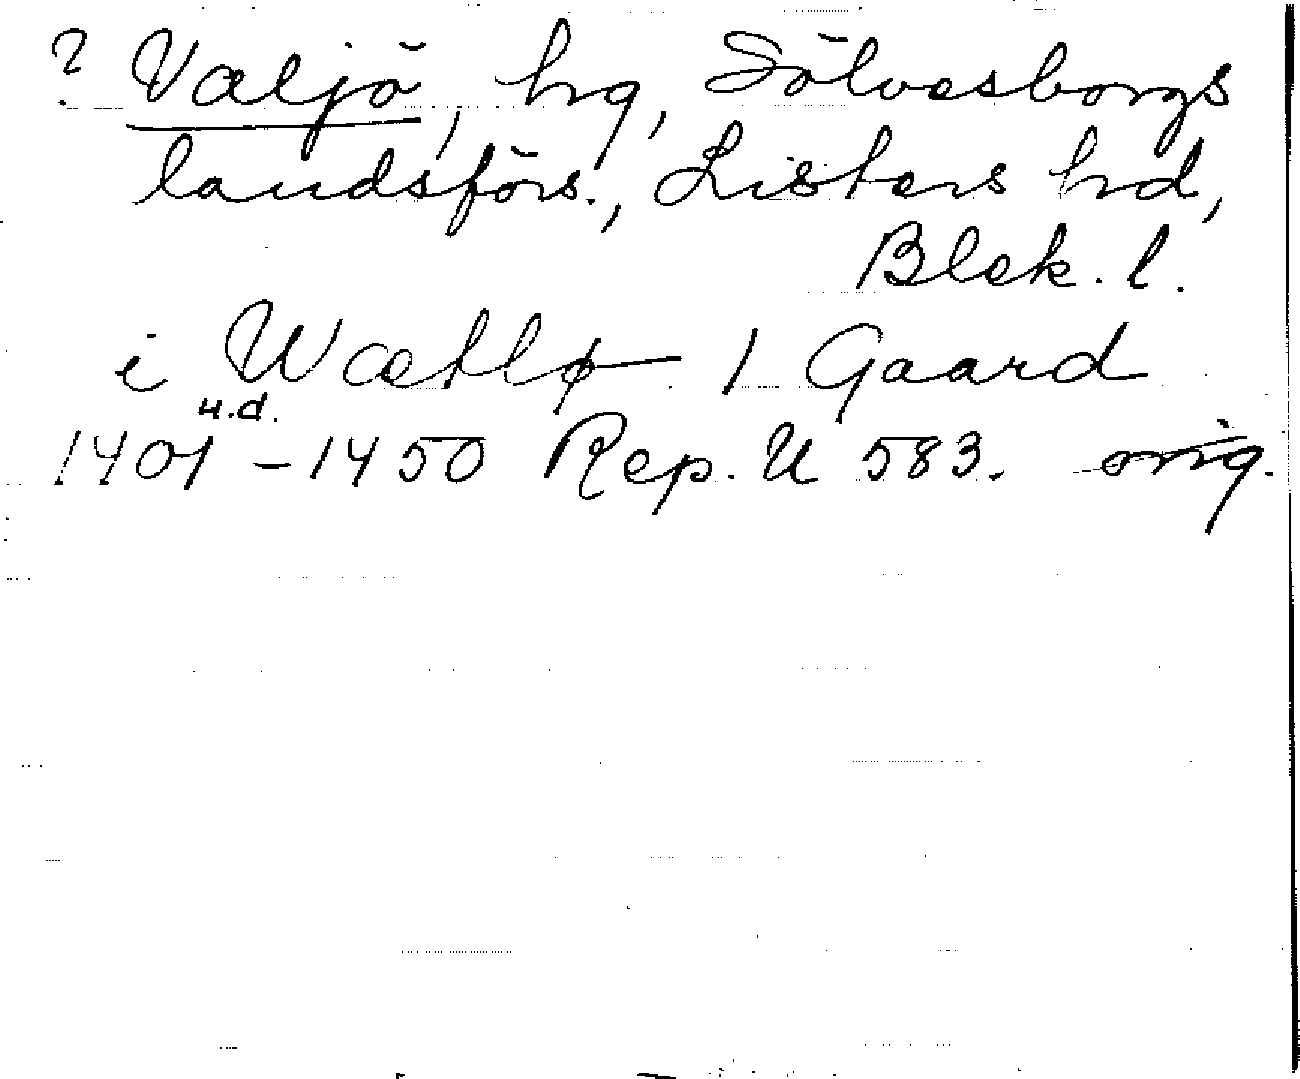 ? Valjö, hg, Sölvesborgs
landsförs., Listers hd,
Blek. l.
i Wætlø 1 Gaard
u.d.
1401-1450 Rep. U 583. orig.